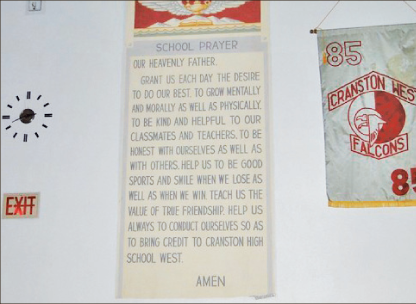 SCHOOL PRAYER
OUR HEAVENLY FATHER.
GRANT US EACH DAY THE DESIRE
TO DO OUR BEST. TO GROW MENTALLY
AND MORALLY AS WELL AS PHYSICALLY.
TO BE KIND AND HELPFUL TO OUR
CLASSMATES AND TEACHERS. TO BE
HONEST WITH OURSELVES AS WELL AS
WITH OTHERS. HELP US TO BE GOOD
SPORTS AND SMILE WHEN WE LOSE AS
WELL AS WHEN WE WIN. TEACH US THE
VALUE OF TRUE FRIENDSHIP. HELP US
ALWAYS TO CONDUCT OURSELVES SO AS
TO BRING CREDIT TO CRANSTON HIGH
SCHOOL WEST.
AMEN
EXIT
85
CRANSTON WEST
FALCONS
85